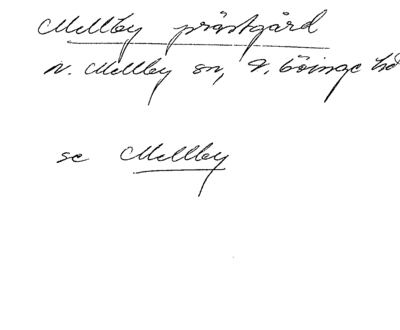 Mellby prästgård
v. Mellby sn, V. Göinge hd
se Mellby